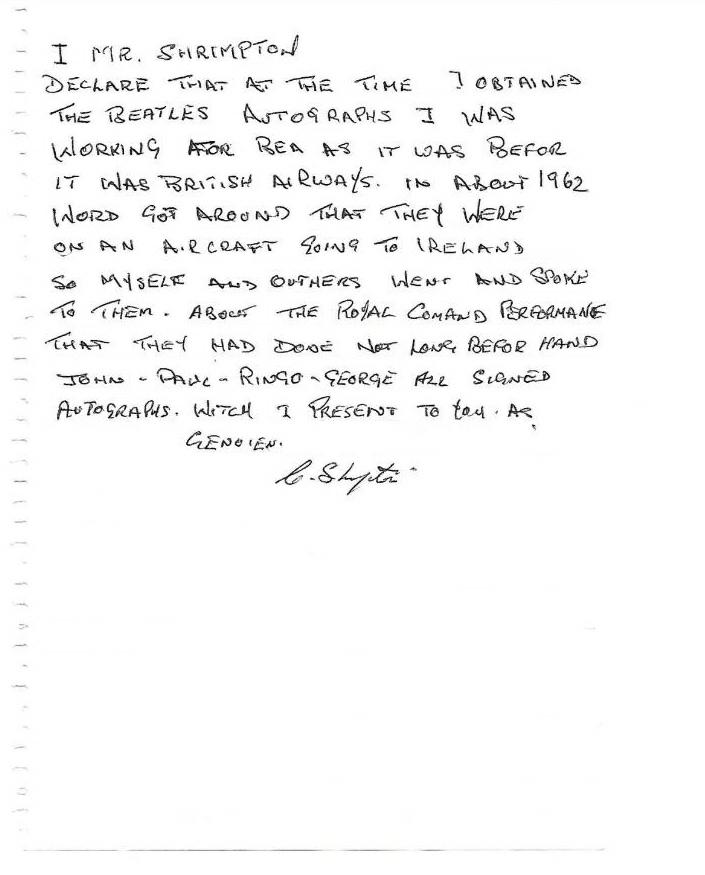 I MR. SHRIMPTON
DECLARE THAT AT THE TIME I OBTAINED
THE BEATLES AUTOGRAPHS I WAS
WORKING FOR BEA AS IT WAS BEFOR
IT WAS BRITISH AIRWAYS. IN ABOUT 1962
WORD GOT AROUND THAT THEY WERE
ON AN AIRCRAFT GOING TO IRELAND
SO MYSELF AND OUTHERS WENT AND SPOKE
TO THEM. ABOUT THE ROYAL COMAND PERFORMANE
THAT THEY HAD DONE NOT LONG BEFOR HAND
JOHN - PAUL - RINGO - GEORGE ALL SIGNED
AUTOGRAPHS. WITCH I PRESENT TO YOU. AS
GENUIEN.